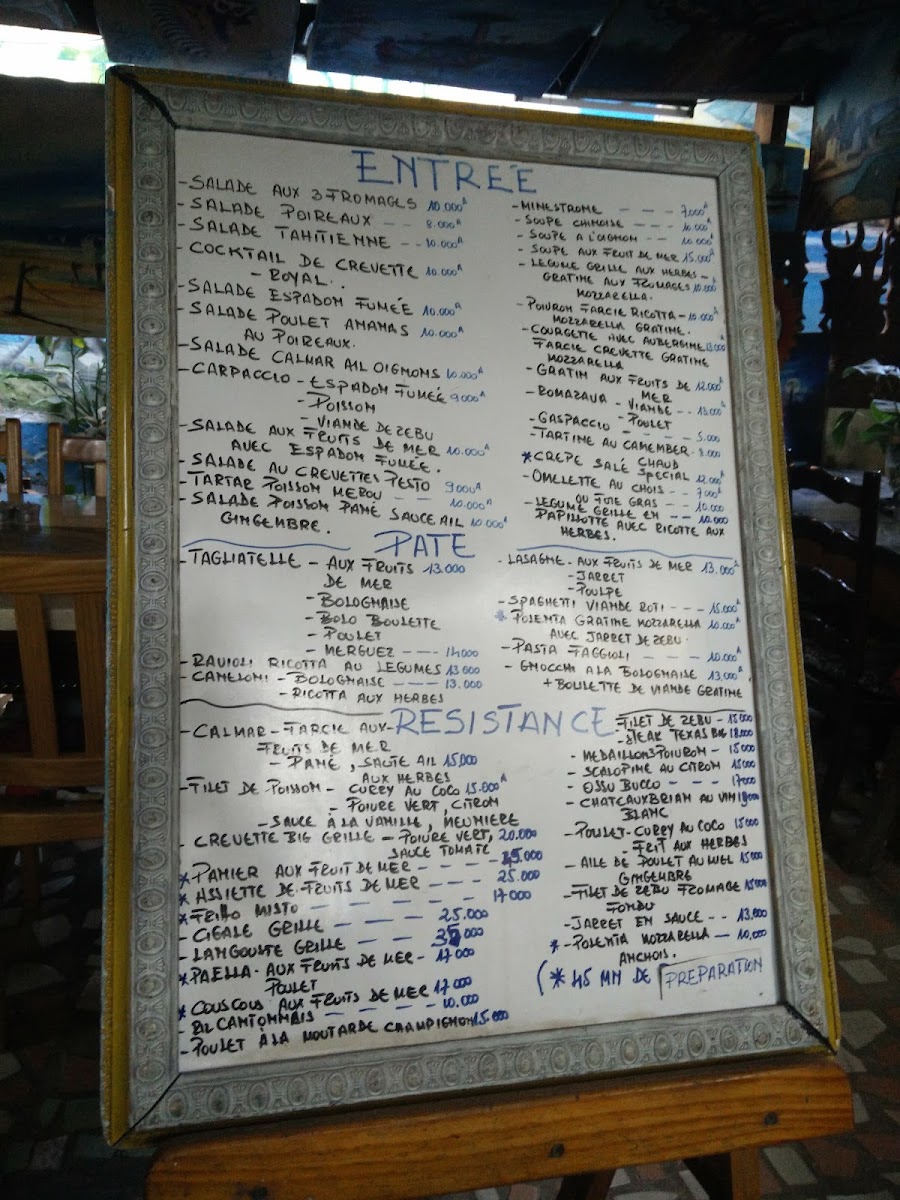 ENTREE
-SALADE AUX 3 FROMAGES 10.000A
-SALADE POIREAUX -- 8.000A
-SALADE TAHITIENNE -- 10.000A
-COCKTAIL DE CREVETTE 10.000A
-ROYAL..
-SALADE ESPADOM FUMÉE 10.000A
-SALADE POULET AMAMAS 10.000A
AU POIREAUX.
-SALADE CALMAR AIL OIGMOMS 10.000A
-CARPACCIO -ESPADOM FUMÉE 9000A
-POISSOM
-VIAMDE DE ZEBU
-SALADE AUX FRUITS DE MER 10.000A
AVEC ESPADOM FUMÉE.
-SALADE AU CREVETTES PESTO 9000A
-TARTAR POISSOM MEROU -- 10.000A
-SALADE POISSOM PAMÉ SAUCE AIL 10.000A
GIMGEMBRE.
-MINESTROME --- 7.000A
-SOUPE CHIMOISE -- 10.000A
-SOUPE A L'OIGMOM -- 10.000A
-SOUPE AUX FRUIT DE MER 15.000A
-LEGUME GRILLE AUX HERBES-
GRATIME AUX FROMAGES 10.000A
MOZZARELLA.
-POIVROM FARCIE RICOTTA- 10.000A
MOZZARELLA GRATIME.
-COURGETTE AVEC AUBERGIME 13.000
FARCIE CREVETTE GRATIME
MOZZARELLA
-GRATIM AUX FRUITS DE 12.000A
MER
-ROMAZAVA -VIAMDE -- 13.000A
-POULET
-GASPACCIO ---- 5.000
-TARTIME AU CAMEMBER. 8.000
CHAUD
*CREPE SALÉ SPECIAL 12.000A
-OMELETTE AU CHOIS -- 7.000A
OU FOIE GRAS -- 10.000
-LEGUME GRILLE EM -- 10.000
PAPILLOTTE AVEC RICOTTE AUX
HERBES.
PATE
-TAGLIATELLE -AUX FRUITS 13.000
DE MER
-BOLOGMAISE
-BOLO BOULETTE
-POULET
-MERGUEZ --- 14000
-RAVIOLI RICOTTA AU LEGUMES 13000
-CAMELOMI -BOLOGMAISE --- 13.000
-RICOTTA AUX HERBES
-LASAGME-AUX FRUITS DE MER 13.000A
-JARRET
-POULPE
-SPAGHETTI VIAMDE ROTI --- 15.000A
*POLEMTA GRATIME MOZZARELLA 10.000A
AVEC JARRET DE ZEBU.
-PASTA FAGGIOLI --- 10.000A
-GMOCCHI A LA BOLOGMAISE 13.000A
+BOULETTE DE VIAMDE GRATIME
RESISTANCE
-CALMAR-FARCIE AUX-
FRUITS DE MER
-PAMÉ, SAUTE AIL 15.000
AUX HERBES
-FILET DE POISSOM- CURRY AU COCO 15.000A
-POIVRE VERT, CITROM
-SAUCE À LA VAMILLE, MEUMIERE
-CREVETTE BIG GRILLE-POIVRE VERT, 20.000
SAUCE TOMATE
*PAMIER AUX FRUIT DE MER ---- 45.000
*ASSIETTE DE FRUITS DE MER --- 25.000
*FRITTO MISTO ---- 17000
-CIGALE GRILLE --- 25.000
-LAMGOUSTE GRILLE --- 35000
*PAELLA-AUX FRUITS DE MER- 17.000
POULET
*COUSCOUS AUX FRUITS DE MER 17000
-RIZ CAMTOMMAIS ---- 10.000
-POULET À LA MOUTARDE CHAMPIGMOM 15.000
-FILET DE ZEBU- 15000
-STEAK TEXAS BIG 18.000
-MEDAILLOM 3 POIVROM- 15000
-SCALOPIME AU CITROM 15000
-OSSU BUCCO --- 17000
-CHATEAUXBRIAM AU VIM 18000
BLAMC
-POULET-CURRY AU COCO 15000
-FRIT AUX HERBES
-AILE DE POULET AU MIEL 15000
GIMGEMBRE
-FILET DE ZEBU FROMAGE 15000
FOMDU
-JARRET EM SAUCE -- 13.000
*-POLEMTA MOZZARELLA- 10.000
AMCHOIS.
(* 45 MN DE PREPARATION